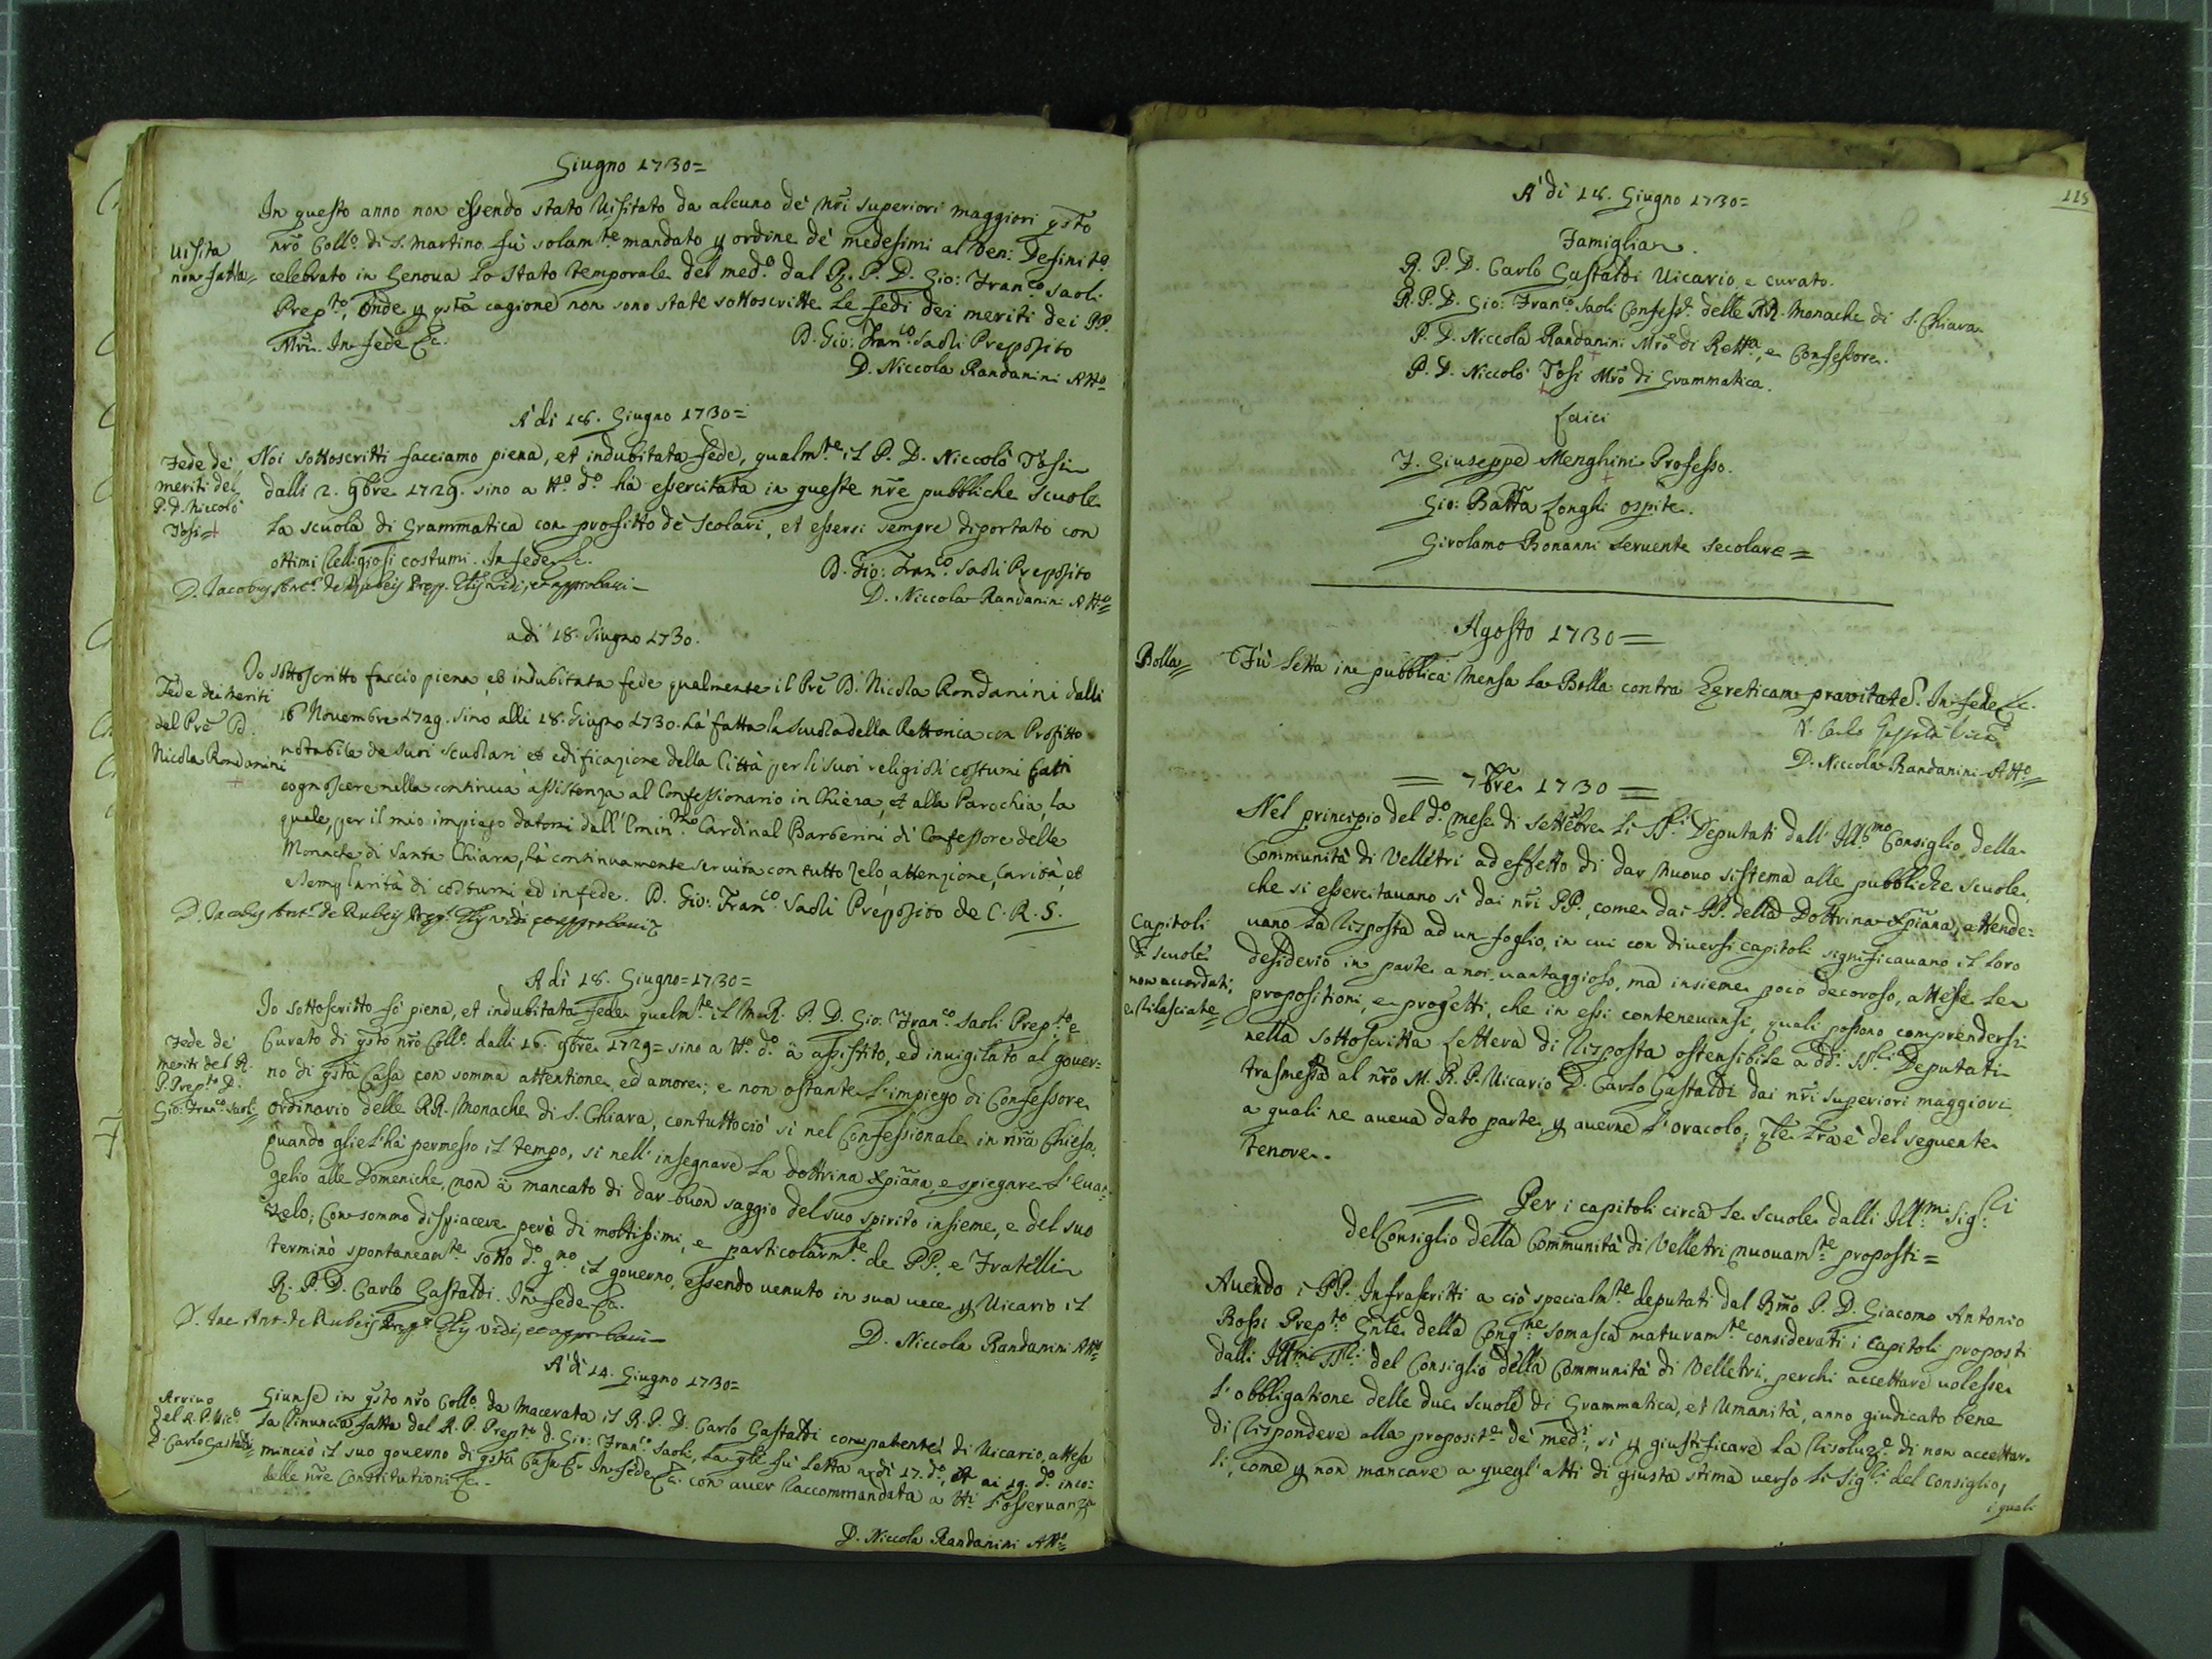 Giugno 1730=
In questo anno non essendo stato Uisitato da alcuno de' nrĩ superiori maggiori qsto
Uisita
non fatta=
nrõ Collo. di S. Martino fù solamte. mandato p ordine de' medesimi al Ven: Definito.
celebrato in Genova lo stato temporale del medo. dal R. P. D. Gio: Franco. Saoli
Prepto., onde p qsta cagione non sono state sottoscritte le fedi dei meriti dei PP.
Nrĩ. In fede &c.
D. Gio: Franco. Saoli Preposito
D. Niccola Randanini Atto.
A' di 18. Giugno 1730=
Fede de'
meriti del
P. D. Niccolò
Tosi=
Noi sottoscritti facciamo piena, et indubitata fede, qualmte. il P. D. Niccolò Tosi
dalli 2. 9bre 1729. sino a tto. do. hà essercitata in queste nre pubbliche scuole
la scuola di Grammatica con profitto de' scolari, et essersi sempre diportato con
ottimi Religiosi costumi. In fede &c.
D. Gio: Franco. Saoli Preposito
D. Jacobus Antˢ. de Rubeis Prep. Glis vidi, et approbavi
D. Niccola Randanini Atto.=
adi 18. Giugno 1730.
Fede dei meriti
del Prẽ D.
Nicola Rondanini
Io sottoscritto faccio piena, et indubitata fede qualmente il Prẽ D. Nicola Rondanini dalli
16 Novembre 1729. sino alli 18. Giugno 1730. hà fatta la scuola della Rettorica con Profitto
notabile de suoi scuolari et edificazione della Città per li suoi religiosi costumi fatti
cognoscere nella continua assistenza al Confessionario in Chiesa, et alla Parochia, la
quale, per il mio impiego datomi dall'Eminmo. Cardinal Barberini di Confessore delle
Monache di Santa Chiara, hà continuamente servita con tutto zelo, attenzione, Carità, et
esemplarità di costumi, ed in fede. D. Gio: Franco. Saoli Preposito de C. R. S.
D. Jacobus Antˢ. de Rubeis Prepˢ. Glis vidi et approbavi
A di 18. Giugno=1730=
Fede de'
meriti del R.
P. Prepto. D.
Gio: Franco. Saoli=
Io sottoscritto fò piena, et indubitata fede qualmte. il M. R. P. D. Gio: Franco. Saoli Prepto. e
Curato di qsto nrõ Collo. dalli 16. 9bre 1729= sino a tto. do. à assistito, ed invigilato al gover=
no di qsta Casa con somma attentione, ed amore; e non ostante l'impiego di Confessore
ordinario delle RR. Monache di S. Chiara, contuttociò si nel Confessionale in nrã Chiesa,
quando gliel'hà permesso il tempo, si nell'insegnare la dottrina Xpĩana, e spiegare l'Euan=
gelio alle Domeniche, non à mancato di dar buon saggio del suo spirito insieme, e del suo
zelo; Con sommo dispiacere però di moltissimi, e particolarmte. de PP., e Fratelli
terminò spontaneamte. sotto do. gno. il governo, essendo venuto in sua vece p Vicario il
R. P. D. Carlo Gastaldi. In fede &c.
D. Jac. Ant. de Rubeis Prepˢ. Glis vidi, et approbavi
D. Niccola Randanini Atto.
A' di 14. Giugno 1730=
Arrivo
del R. P. Vico.
D. Carlo Gastaldi=
Giunse in qsto nrõ Collo. da Macerata il R. P. D. Carlo Gastaldi con patente di Vicario, attesa
la rinuncia fatta dal R. P. Prepto. D. Gio: Franco. Saoli, la qle fù letta a dì 17. do., et ai 19. do. inco=
minciò il suo governo di qsta Casa &c. In fede &c. con auer raccommandata a tti. l'osservanza
delle nrẽ Constitutioni &c.
D. Niccola Randanini Atto.=
115
A' di 18. Giugno 1730=
Famiglia.
R. P. D. Carlo Gastaldi Vicario, e curato.
R. P. D. Gio: Franco. Saoli Confessre. delle RR. Monache di S. Chiara
P. D. Niccola Randanini Mrõ di Retta., e Confessore.
P. D. Niccolò Tosi Mrõ di Grammatica.
Laici
F. Giuseppe Menghini Professo.
Gio: Battã Longhi ospite.
Girolamo Bonanni seruente secolare=
Agosto 1730=
Bolla=
Fù letta in pubblica Mensa la Bolla contra Hæreticam pravitatem. In fede &c.
D. Carlo Gastaldi Vico.
D. Niccola Randanini Atto.=
= 7bre 1730 =
Nel principio del do. mese di Settẽbre li SSri. Deputati dall'Illmo. Consiglio della
Communità di Velletri ad effetto di dar nuouo sistema alle pubbliche scuole,
che si essercitauano sì dai nrĩ PP., come dai PP. della Dottrina Xpĩana, attende=
Capitoli
di scuole
non accordati,
e rilasciate=
uano la risposta ad un foglio, in cui con diuersi capitoli significauano il loro
desiderio in parte a noi uantaggioso, ma insieme poco decoroso, attese le
propositioni, e progetti, che in essi conteneuansi, quali possono comprendersi
nella sottoscritta Lettera di risposta ostensibile a dd: SSri. Deputati
trasmessa al nrõ M. R. P. Vicario D. Carlo Gastaldi dai nrĩ superiori maggiori
a quali ne aueua dato parte, p auerne l'oracolo; qle Lrã è del seguente
tenore.
= Per i capitoli circa le scuole dalli Illmi. Sigri.
del Consiglio della Communità di Velletri nuouamte. proposti=
Auendo i PP. Infrascritti a ciò specialmte. deputati dal Rmõ P. D. Giacomo Antonio
Rossi Prepto. Gnle della Congne. Somasca maturamte. considerati i Capitoli proposti
dalli Illmi. SSri. del Consiglio della Communità di Velletri, perchi accettare uolesse
l'obbligatione delle due scuole di Grammatica, et Umanità, anno giudicato bene
di rispondere alla proposite. de' medi., sì p giustificare la risoluze. di non accettar=
li, come p non mancare a quegl'atti di giusta stima uerso li Sigri. del Consiglio,
i quali